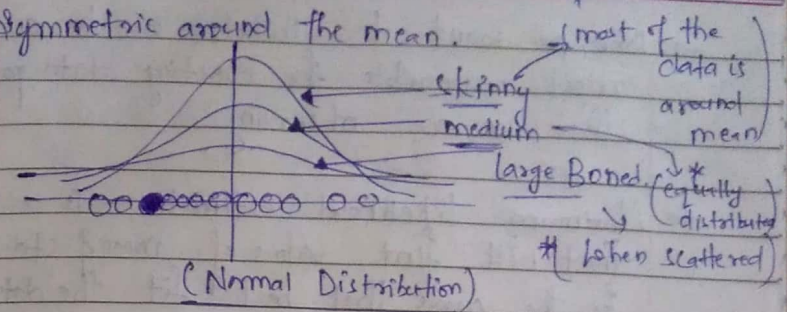 Symmetric around the mean.
(most of the
data is
around
mean)
skinny
medium
large Boned.
* (equally
distributed)
* (when scattered)
(Normal Distribution)